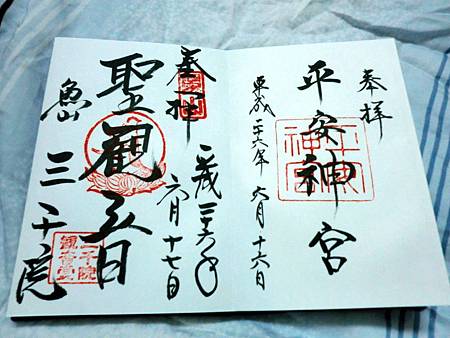 奉拝
平安神宮
平安神宮
平成二十六年 六月十六日
平成二十六年
六月十七日
奉拝
聖観音
三千院観音堂
魚山 三千院